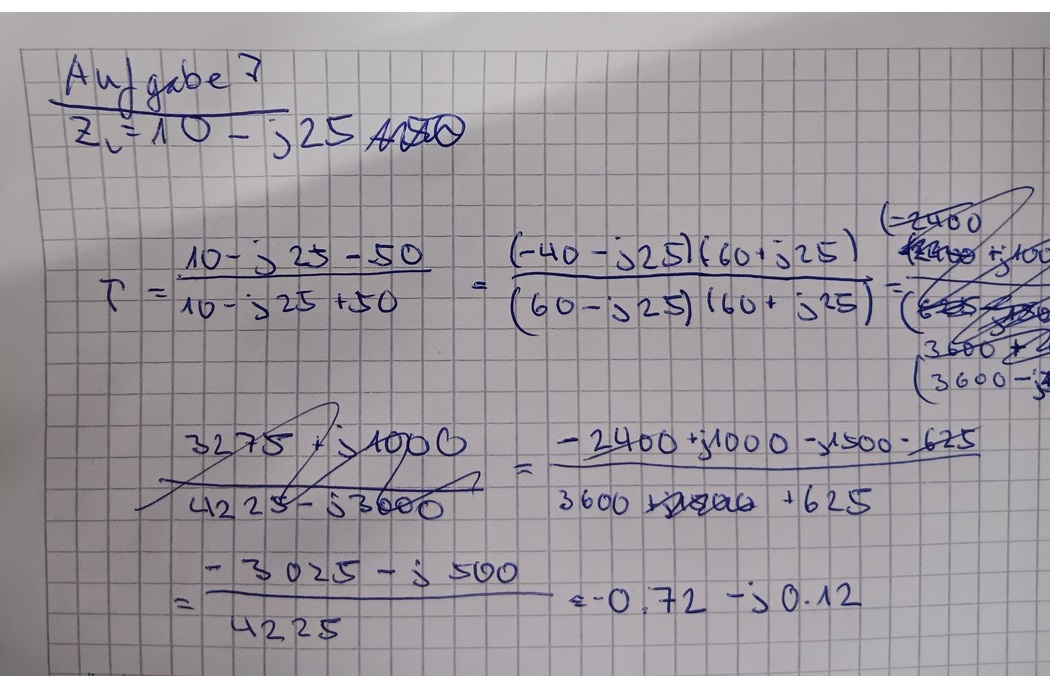 Aufgabe 7
Z_L = 10 - j25
Γ = (10 - j25 - 50) / (10 - j25 + 50) = ((-40 - j25)(60 + j25)) / ((60 - j25)(60 + j25)) =
(-2400
+ j100
3600 +
(3600 - j
3275 + j1000 / 4225 - j3000 = (-2400 + j1000 - j1500 - 625) / (3600 + 625)
= (-3025 - j500) / 4225 = -0.72 - j0.12